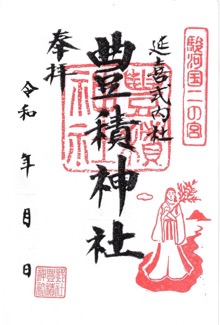 駿河国二の宮
延喜式内社
豊積神社
奉拝
令和 年 月 日